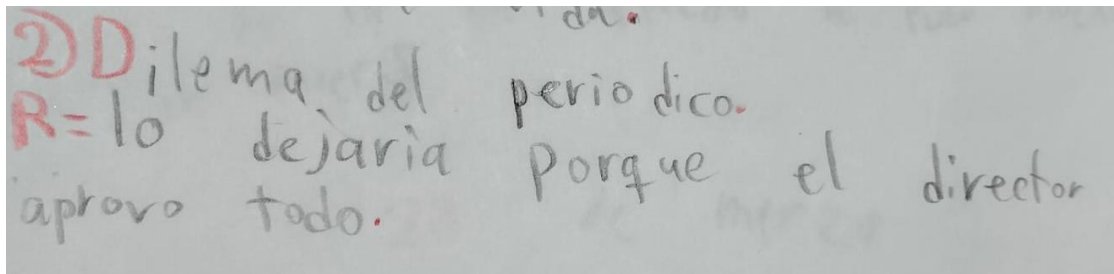 da.
2) Dilema del periodico.
R= lo dejaria porque el director
aprovo todo.